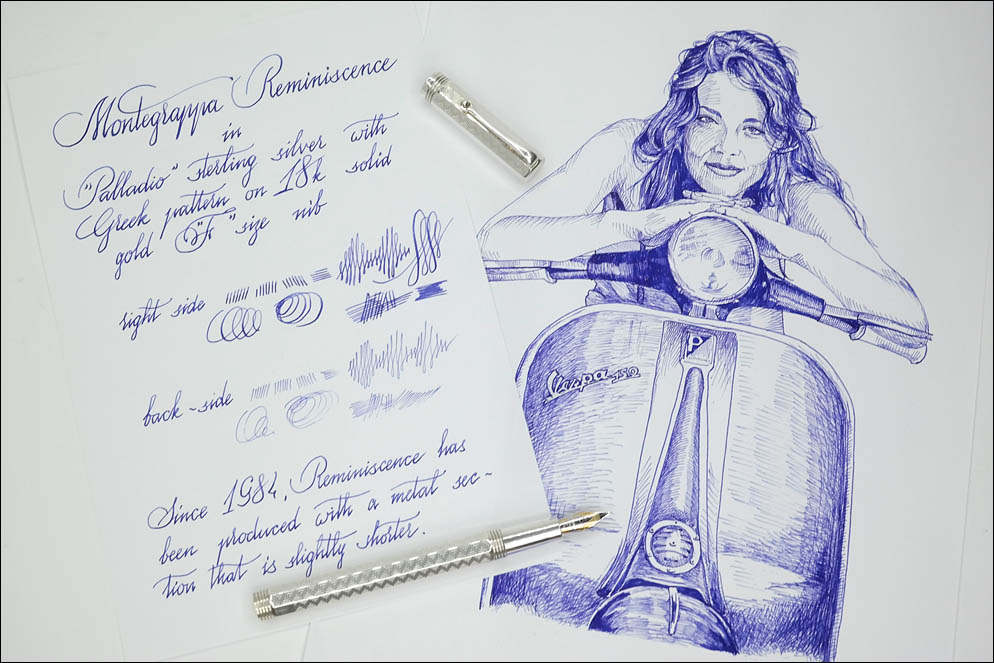 Montegrappa Reminiscence
in
"Palladio" sterling silver with
Greek pattern on 18k solid
gold "F" size nib
right side
back-side
Since 1984, Reminiscence has
been produced with a metal sec-
tion that is slightly shorter.
P
Vespa 150